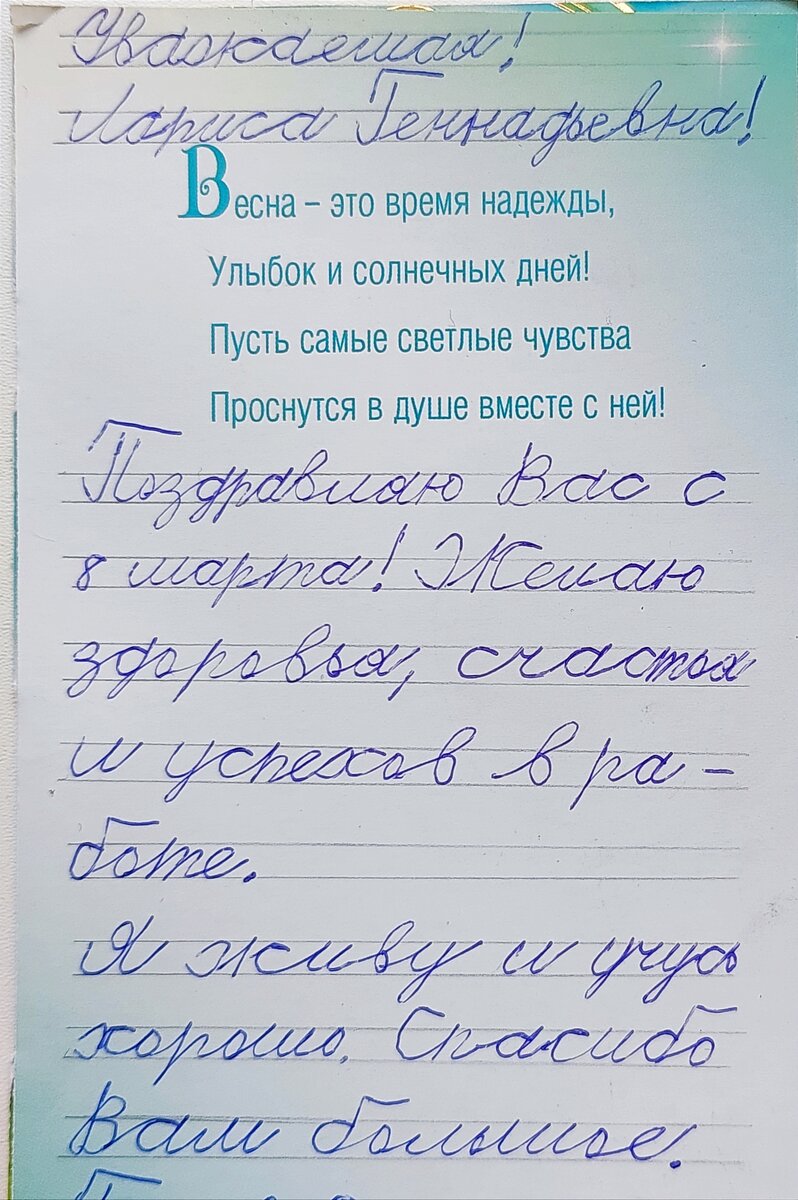 Уважаемая!
Лариса Геннадьевна!
Весна – это время надежды,
Улыбок и солнечных дней!
Пусть самые светлые чувства
Проснутся в душе вместе с ней!
Поздравляю Вас с
8 марта! Желаю
здоровья, счастья
и успехов в ра-
боте.
Я живу и учусь
хорошо. Спасибо
Вам большое.